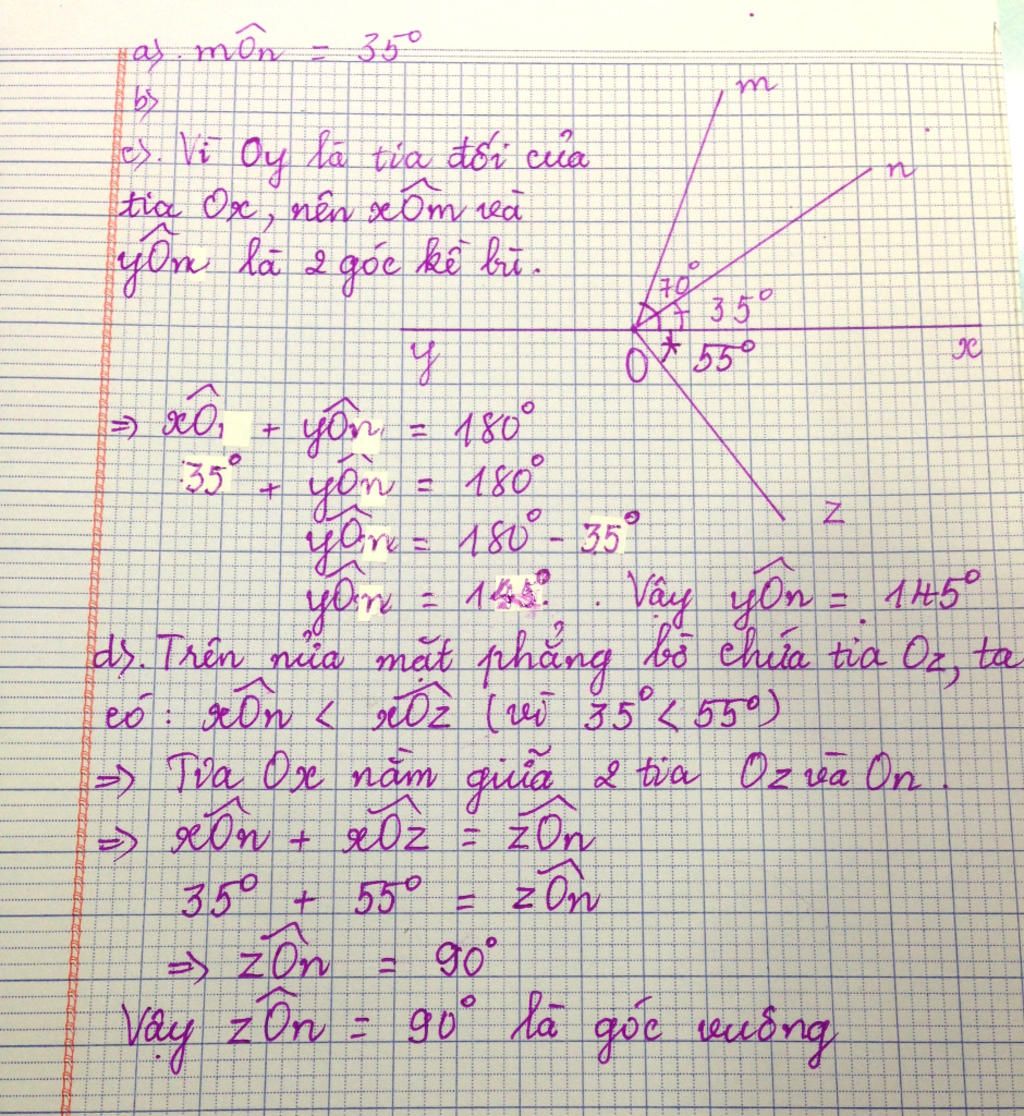 a). mÔn = 35°
b)
c). Vì Oy là tia đối của
tia Ox, nên xÔm và
yÔn là 2 góc kề bù.
m
n
70°
35°
y
O
55°
x
z
⇒ xÔ + yÔn = 180°
35° + yÔn = 180°
yÔn = 180° - 35°
yÔn = 145°. Vậy yÔn = 145°
d). Trên nửa mặt phẳng bờ chứa tia Oz, ta
có: xÔn < xÔz (vì 35° < 55°)
⇒ Tia Ox nằm giữa 2 tia Oz và On.
⇒ xÔn + xÔz = zÔn
35° + 55° = zÔn
⇒ zÔn = 90°
Vậy zÔn = 90° là góc vuông